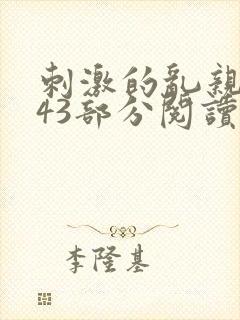 刺激的亂親
43部分閱讀
李隆基